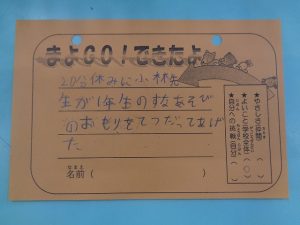 まよGO!できたよ
20分休みに小林先
生が1年生のすなあそび
のおもりをてつだってあげ
た
名前(なまえ)(　　　)
★やさしさ(仲間)(　)
★よいこと(学校全体)(○)
★自分への挑戦(自分)(　)